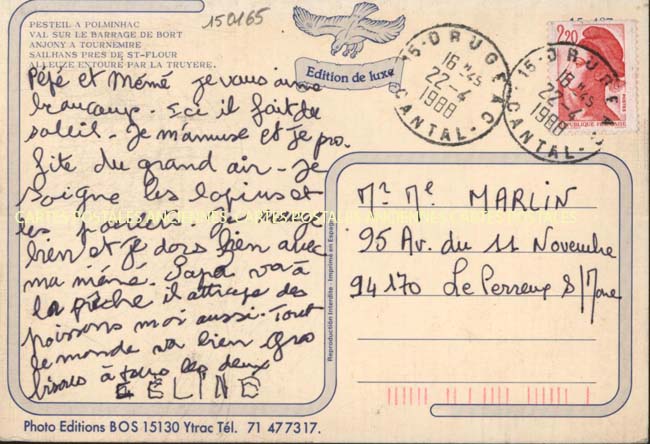 PESTEIL A POLMINHAC
VAL SUR LE BARRAGE DE BORT
ANJONY A TOURNEMIRE
SAILHANS PRES DE ST-FLOUR
ALLEUZE ENTOURÉ PAR LA TRUYERE.
150165
Edition de luxe
15-DRUGEAC
16 H45
22-4
1988
CANTAL-
15-DRUGEAC
16 H45
22-4
1988
CANTAL-
2,20
POSTES
REPUBLIQUE FRANÇAISE
Pépé et Mémé je vous aime
beaucoup. Ici il fait du
soleil. Je m'amuse et je pro.
fite du grand air. Je
soigne les lapins et
les
bien et je dors bien avec
ma mémé. Papa va à
la pêche il attrape des
poissons moi aussi. Tout
le monde va bien Gros
bisous à tous les deux
CÉLINE
CARTES POSTALES ANCIENNES CARTES POSTALES ANCIENNES CARTES POSTALES
Mr Me MARLIN
95 Av. du 11 Novembre
94170 Le Perreux s/Marne
Reproduction Interdite - Imprimé en Espagne
Photo Editions BOS 15130 Ytrac Tél. 71 477317.